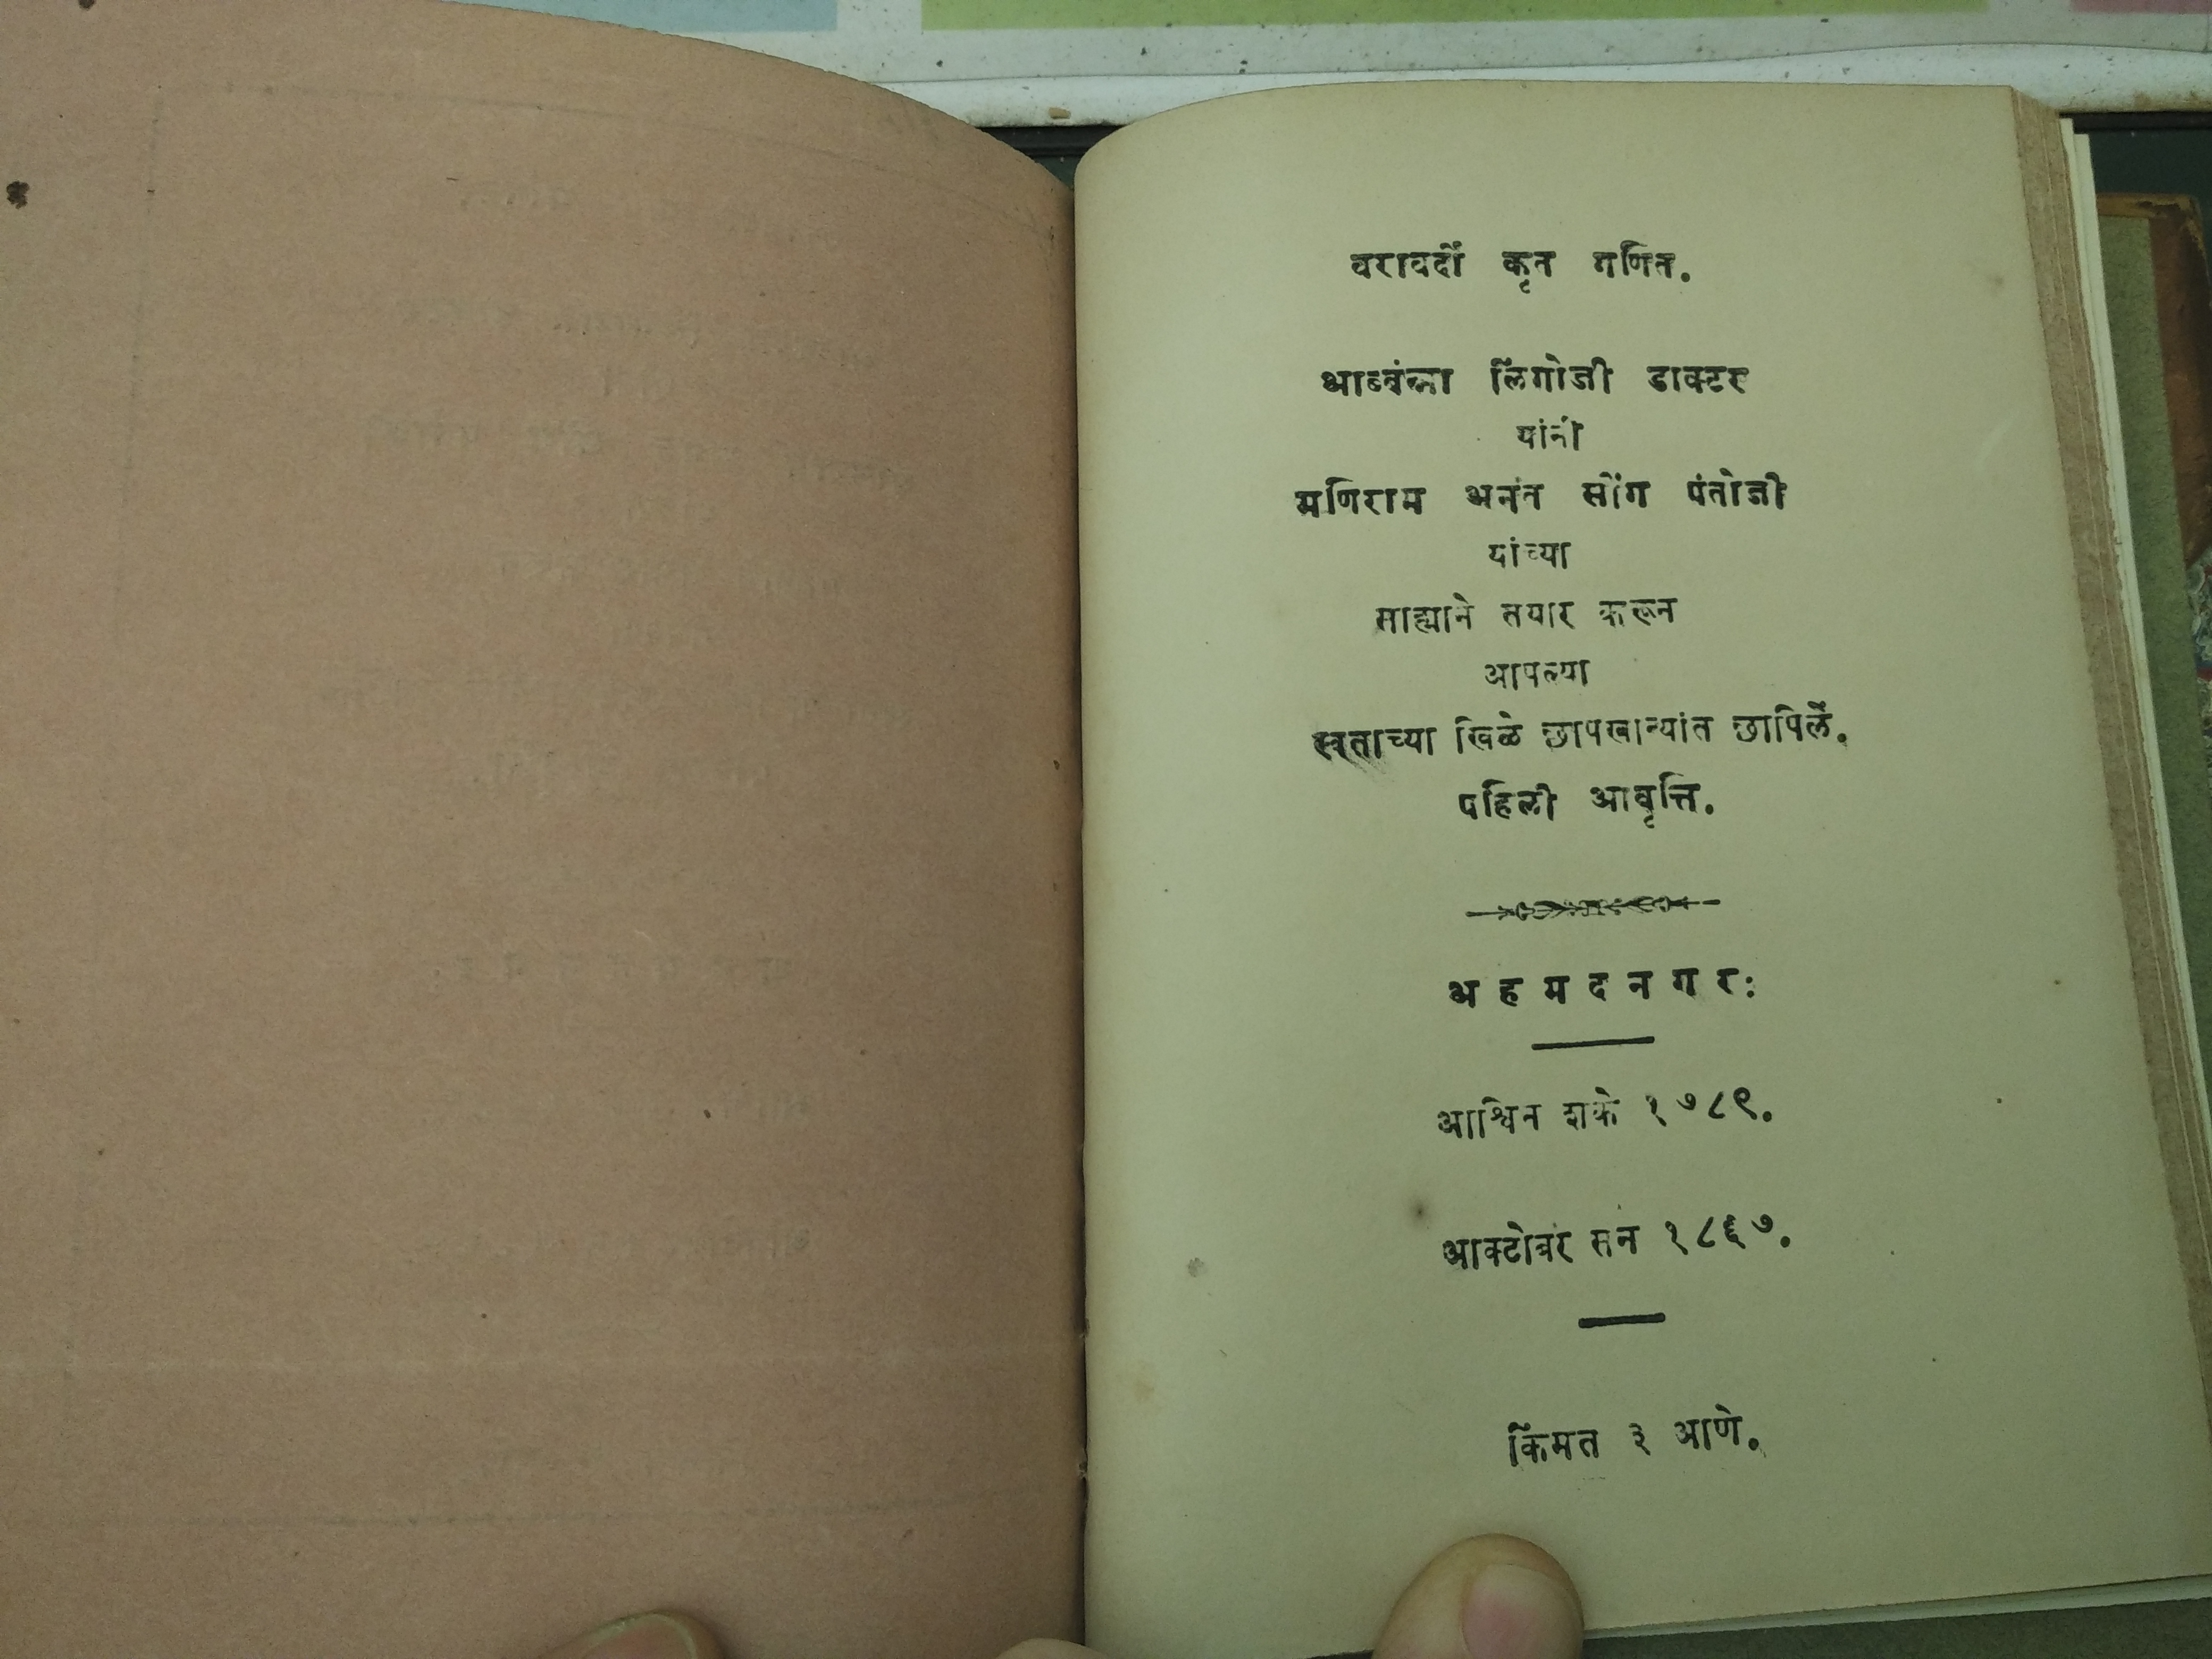 वरावर्दी कृत गणित.
लिंगोजी डाक्टर
यांनी
मणिराम अनंत सोंग पंतोजी
यांच्या
साह्याने तयार करून
आपल्या
स्वताच्या खिळे छापखान्यांत छापिलें.
पहिली आवृत्ति.
अ ह म द न ग र:
आश्विन शके १७८९.
आक्टोबर सन १८६७.
किंमत ३ आणे.